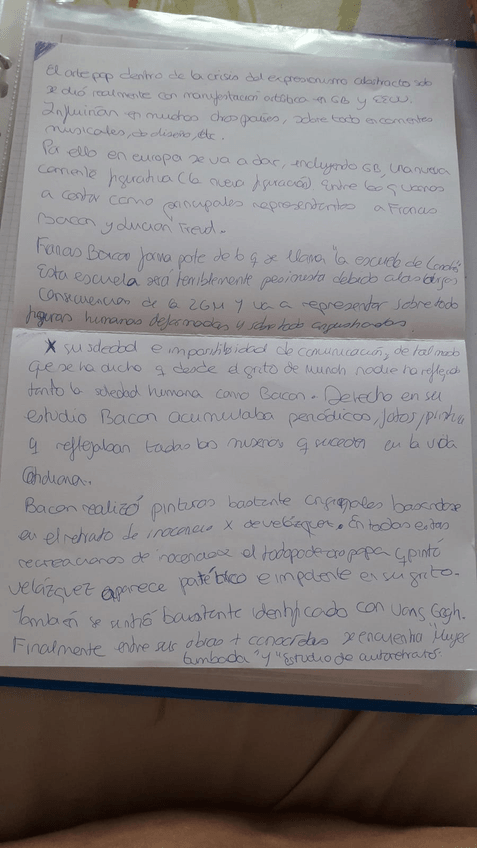 El arte pop dentro de la crisis del expresionismo abstracto solo
se dió realmente con manifestación artística en GB y EEUU.
Influirían en muchos otros países, sobre todo en corrientes
musicales, de diseño, etc.
Por ello en europa se va a dar, incluyendo GB, una nueva
corriente figurativa (la nueva figuración) Entre los q vamos
a contar como principales representantes a Francis
Bacon y Lucian Freud.
Francis Bacon forma parte de lo q se llama "la escuela de Londres"
Esta escuela será terriblemente pesimista debido a las
consecuencias de la 2GM y va a representar sobre todo
figuras humanas deformadas y sobre todo angustiadas
X su soledad e imposibilidad de comunicación, de tal modo
que se ha dicho q desde el grito de Munch nadie ha reflejado
tanto la soledad humana como Bacon. De hecho en su
estudio Bacon acumulaba periódicos, fotos, pinturas
q reflejaban todas las miserias q suceden en la vida
cotidiana.
Bacon realizó pinturas bastante originales basándose
en el retrato de inocencio X de velázquez. En todas estas
recreaciones de inocencio X el todopoderoso papa q pintó
velázquez aparece patético e impotente en su grito.
También se sintió bastante identificado con Vang Gogh.
Finalmente entre sus obras + conocidas se encuentra "Mujer
tumbada" y "Estudio de autorretrato".